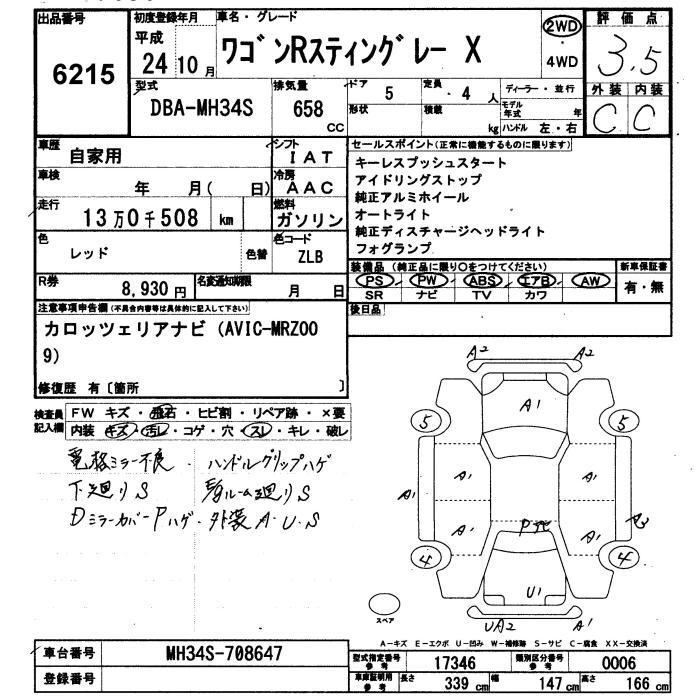 出品番号
6215
初度登録年月
平成
24 10 月
車名・グレード
ワゴンRスティングレー X
2WD
4WD
評価点
3.5
外装 内装
C C
型式
DBA-MH34S
排気量
658
cc
ドア
5
定員
4 人
形状
積載
kg
ディーラー・並行
モデル年式 年
ハンドル 左・右
車歴
自家用
シフト
I A T
車検
年 月( 日)
冷房
A A C
走行
13 万 0 千 508 km
燃料
ガソリン
色
レッド
色替
色コード
ZLB
R券
8,930 円
名変通知期限
月 日
セールスポイント(正常に機能するものに限ります)
キーレスプッシュスタート
アイドリングストップ
純正アルミホイール
オートライト
純正ディスチャージヘッドライト
フォグランプ
装備品(純正品に限り○をつけてください)
PS PW ABS エアB AW
SR ナビ TV カワ
新車保証書
有・無
後日品
注意事項申告欄(不具合内容等は具体的に記入して下さい)
カロッツェリアナビ(AVIC-MRZ00
9)
修復歴 有〔箇所 〕
検査員
記入欄
FW キズ・飛石・ヒビ割・リペア跡・×要
内装 キズ・汚レ・コゲ・穴・スレ・キレ・破レ
電格ミラー不良・ハンドルグリップハゲ
下廻りS
ルーム廻りS
Dミラーカバー Pハゲ・外装A・U・S
A2 A2
A1
5 5
A1 A1 A1
A1 A1 A3
Pナビ
4 4
U1
UA2 A1
スペア
A-キズ E-エクボ U-凹み W-補修跡 S-サビ C-腐食 XX-交換済
車台番号
MH34S-708647
登録番号
型式指定番号
参考
17346
類別区分番号
参考
0006
車庫証明用
参考
長さ 339 cm
幅 147 cm
高さ 166 cm